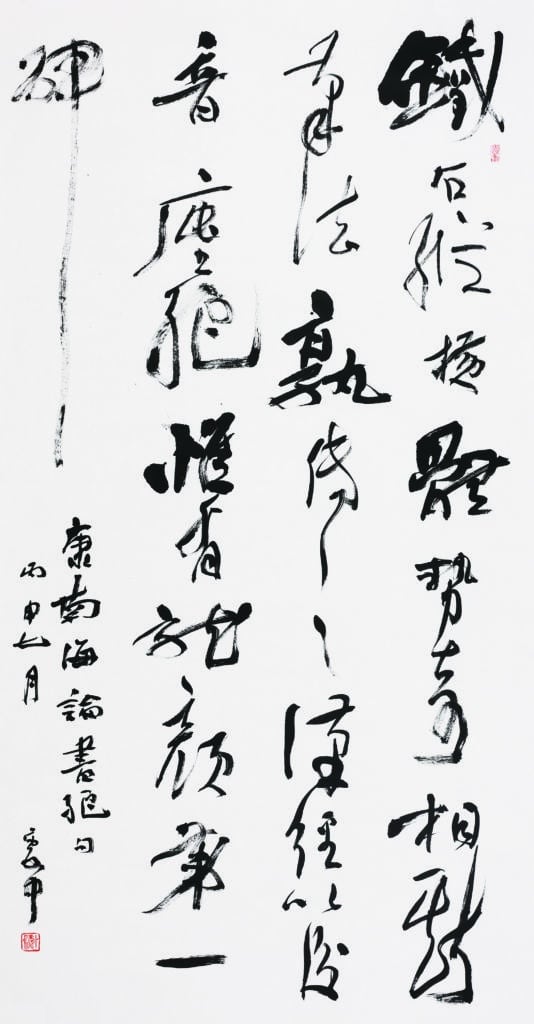 鐵石縱橫體勢奇相斯
筆法孰傳之漢經以後
音塵絕惟有龍顏第一
碑
康南海論書絕句
丙申七月